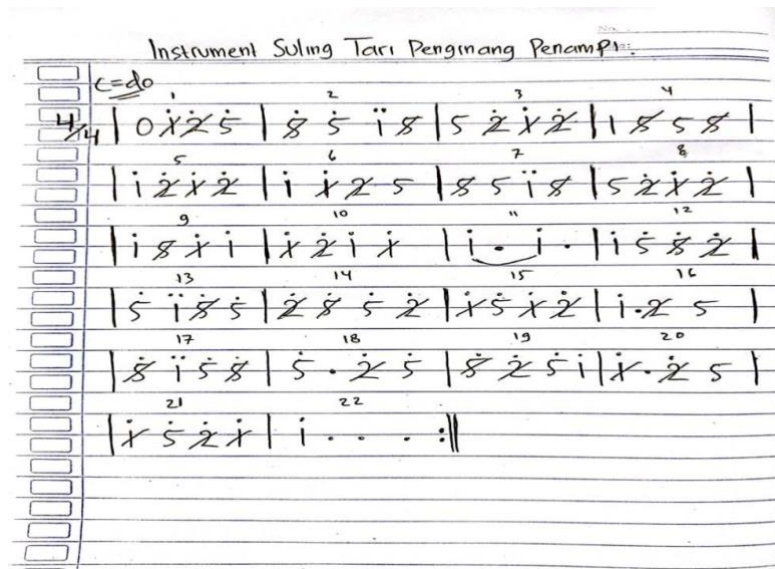 Instrument Suling Tari Penginang Penampi.
C=do
1 2 3 4
4/4 | 0 1̸̇ 2̸̇ 5̇ | 5̸̇ 5̇ 1̈ 5̸ | 5 2̸̇ 1̸̇ 2̸̇ | 1 5̸ 5 5̸ |
5 6 7 8
| 1̇ 2̸̇ 1̸̇ 2̸̇ | 1̇ 1̸̇ 2̸ 5 | 5̸ 5 1̈ 5̸ | 5 2̸̇ 1̸̇ 2̸̇ |
9 10 11 12
| 1̇ 5̸ 1̸̇ 1̇ | 1̸̇ 2̸̇ 1̇ 1̸̇ | 1̇ . 1̇ . | 1̇ 5̇ 5̸̇ 2̸̇ |
13 14 15 16
| 5̇ 1̈ 5̸̇ 5̇ | 2̸̇ 5̸̇ 5̇ 2̸̇ | 1̸̇ 5̇ 1̸̇ 2̸̇ | 1̇ . 2̸ 5 |
17 18 19 20
| 5̸̇ 1̈ 5̇ 5̸̇ | 5̇ . 2̸̇ 5̇ | 5̸̇ 2̸̇ 5̇ 1̇ | 1̸̇ . 2̸̇ 5 |
21 22
| 1̸̇ 5̇ 2̸̇ 1̸̇ | 1̇ . . . :||